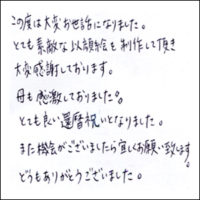 この度は大変お世話になりました。
とても素敵な似顔絵を制作して頂き
大変感謝しております。
母も感激しておりました。
とても良い還暦祝いとなりました。
また機会がございましたら宜しくお願い致します。
どうもありがとうございました。